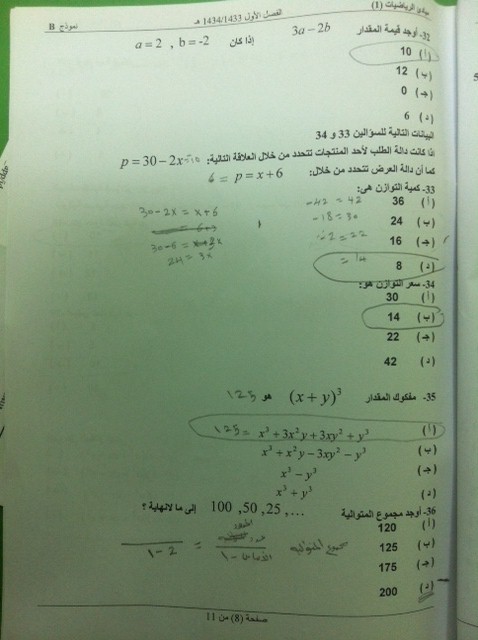 مبادئ الرياضيات (1) الفصل الأول 1434/1433 هـ نموذج B
32- أوجد قيمة المقدار 3a − 2b إذا كان a = 2 , b = -2
(أ) 10
(ب) 12
(ج) 0
(د) 6
البيانات التالية للسؤالين 33 و 34
اذا كانت دالة الطلب لأحد المنتجات تتحدد من خلال العلاقة التالية: p = 30 − 2x
كما أن دالة العرض تتحدد من خلال: p = x + 6
6 =
33- كمية التوازن هى:
(أ) 36
(ب) 24
(ج) 16
(د) 8
30 - 2x = x + 6
24 = 3x
-42 = 42
-18 = 30
-2 = 22
= 14
34- سعر التوازن هو:
(أ) 30
(ب) 14
(ج) 22
(د) 42
35- مفكوك المقدار (x + y)³ هو 125
(أ) x³ + 3x²y + 3xy² + y³ = 125
(ب) x³ + x²y − 3xy² − y³
(ج) x³ − y³
(د) x³ + y³
36- أوجد مجموع المتوالية 100 , 50 , 25 , ... إلى ما لانهاية ؟
(أ) 120
(ب) 125
(ج) 175
(د) 200
مجموع المتوالية
الأساس - 1
=
1 - 2
صفحة (8) من 11